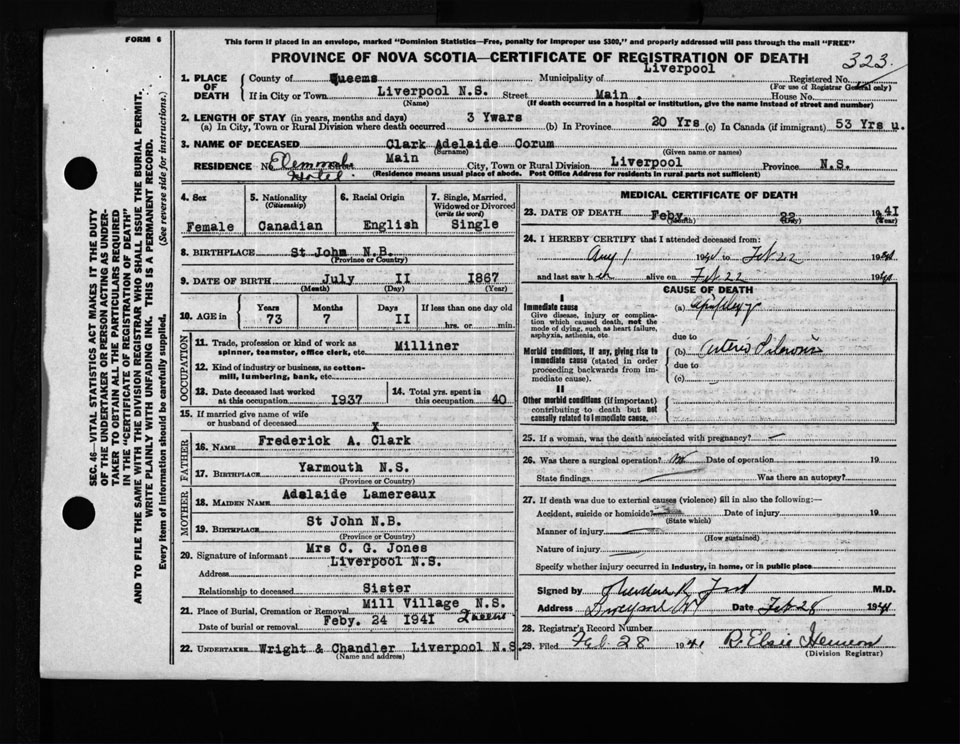 FORM 6
This form if placed in an envelope, marked "Dominion Statistics—Free, penalty for improper use $300," and properly addressed will pass through the mail "FREE"
PROVINCE OF NOVA SCOTIA—CERTIFICATE OF REGISTRATION OF DEATH
323
1. PLACE OF DEATH
County of Queems Municipality of Liverpool Registered No.
(For use of Registrar General only)
If in City or Town Liverpool N.S. Street Main . House No.
(Name) (If death occurred in a hospital or institution, give the name instead of street and number)
2. LENGTH OF STAY (in years, months and days)
(a) In City, Town or Rural Division where death occurred 3 Ywars (b) In Province 20 Yrs (c) In Canada (if immigrant) 53 Yrs u.
3. NAME OF DECEASED Clark Adelaide Corum
(Surname) (Given name or names)
RESIDENCE No. Hotel Main City, Town or Rural Division Liverpool Province N.S.
(Residence means usual place of abode. Post Office Address for residents in rural parts not sufficient)
4. Sex
Female
5. Nationality
(Citizenship)
Canadian
6. Racial Origin
English
7. Single, Married, Widowed or Divorced
(write the word)
Single
8. BIRTHPLACE St John N.B.
(Province or Country)
9. DATE OF BIRTH July II 1867
(Month) (Day) (Year)
10. AGE in
Years 73
Months 7
Days II
If less than one day old
hrs. or min.
OCCUPATION
11. Trade, profession or kind of work as spinner, teamster, office clerk, etc. Milliner
12. Kind of industry or business, as cotton-mill, lumbering, bank, etc.
13. Date deceased last worked at this occupation 1937
14. Total yrs. spent in this occupation 40
15. If married give name of wife or husband of deceased X
FATHER
16. NAME Frederick A. Clark
17. BIRTHPLACE Yarmouth N.S.
(Province or Country)
MOTHER
18. MAIDEN NAME Adalaide Lamereaux
19. BIRTHPLACE St John N.B.
(Province or Country)
20. Signature of informant Mrs C. G. Jones
Address Liverpool N.S.
Relationship to deceased Sister
21. Place of Burial, Cremation or Removal Mill Village N.S.
Queens
Date of burial or removal Feby. 24 1941
22. UNDERTAKER Wright & Chandler Liverpool N.S.
(Name and address)
MEDICAL CERTIFICATE OF DEATH
23. DATE OF DEATH Feby 22 1941
(Month) (Day) (Year)
24. I HEREBY CERTIFY that I attended deceased from:
Aug 1 19 to Feb 22 1941
and last saw h alive on Feb 22 1941
CAUSE OF DEATH
I
Immediate cause
Give disease, injury or complication which caused death, not the mode of dying, such as heart failure, asphyxia, asthenia, etc.
(a) Apoplexy
due to
Morbid conditions, if any, giving rise to immediate cause (stated in order proceeding backwards from immediate cause).
(b) Arterio
due to
(c)
II
Other morbid conditions (if important) contributing to death but not causally related to immediate cause.
25. If a woman, was the death associated with pregnancy? —
26. Was there a surgical operation? no Date of operation 19
State findings Was there an autopsy?
27. If death was due to external causes (violence) fill in also the following:—
Accident, suicide or homicide? Date of injury 19
(State which)
Manner of injury
(How sustained)
Nature of injury
Specify whether injury occurred in industry, in home, or in public place
Signed by Theodore R. Ford M.D.
Address Date Feb 28 1941
28. Registrar's Record Number
29. Filed Feb 28 1941 R. Elsie
(Division Registrar)
SEC. 46—VITAL STATISTICS ACT MAKES IT THE DUTY
OF THE UNDERTAKER OR PERSON ACTING AS UNDER-
TAKER TO OBTAIN ALL THE PARTICULARS REQUIRED
IN THE "CERTIFICATE OF REGISTRATION OF DEATH"
AND TO FILE THE SAME WITH THE DIVISION REGISTRAR WHO SHALL ISSUE THE BURIAL PERMIT.
WRITE PLAINLY WITH UNFADING INK. THIS IS A PERMANENT RECORD.
Every item of information should be carefully supplied. (See reverse side for instructions.)